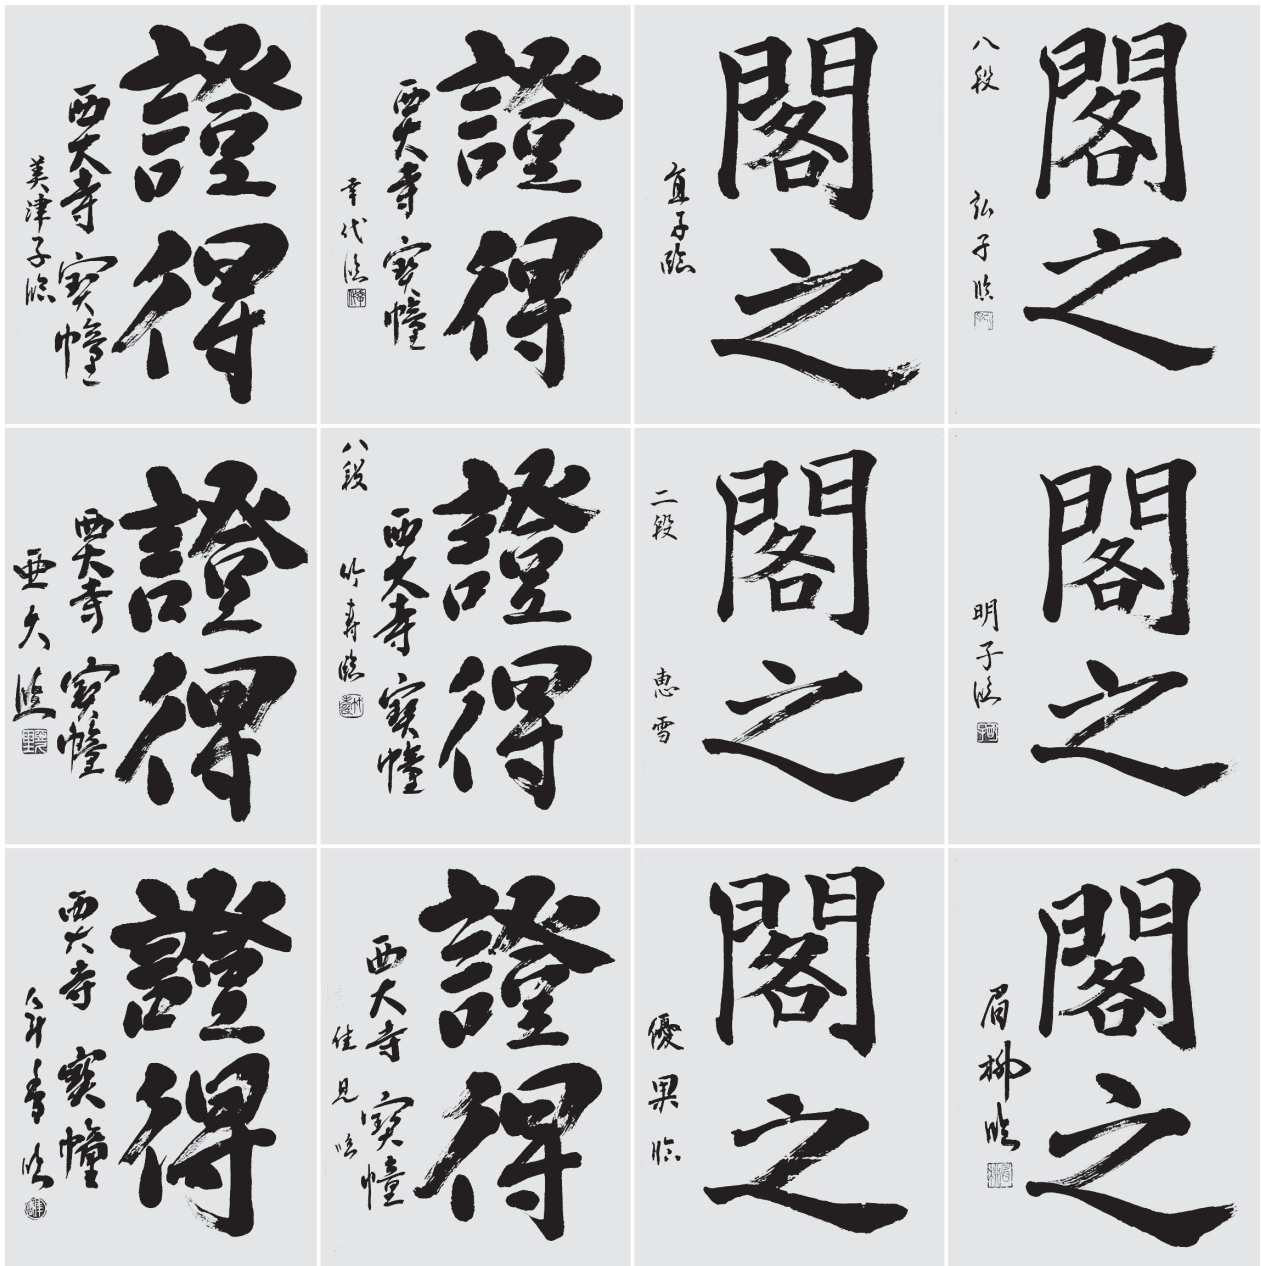 閣之
八段 弘子臨
閣之
直子臨
證得
西大寺 寶幢
幸代臨
證得
西大寺 寶幢
美津子臨
閣之
明子臨
閣之
二段 恵雪
證得
西大寺 寶幢
八段 竹寿臨
證得
西大寺 寶幢
亜久臨
閣之
眉柳臨
閣之
優果臨
證得
西大寺 寶幢
佳見臨
證得
西大寺 寶幢
香臨